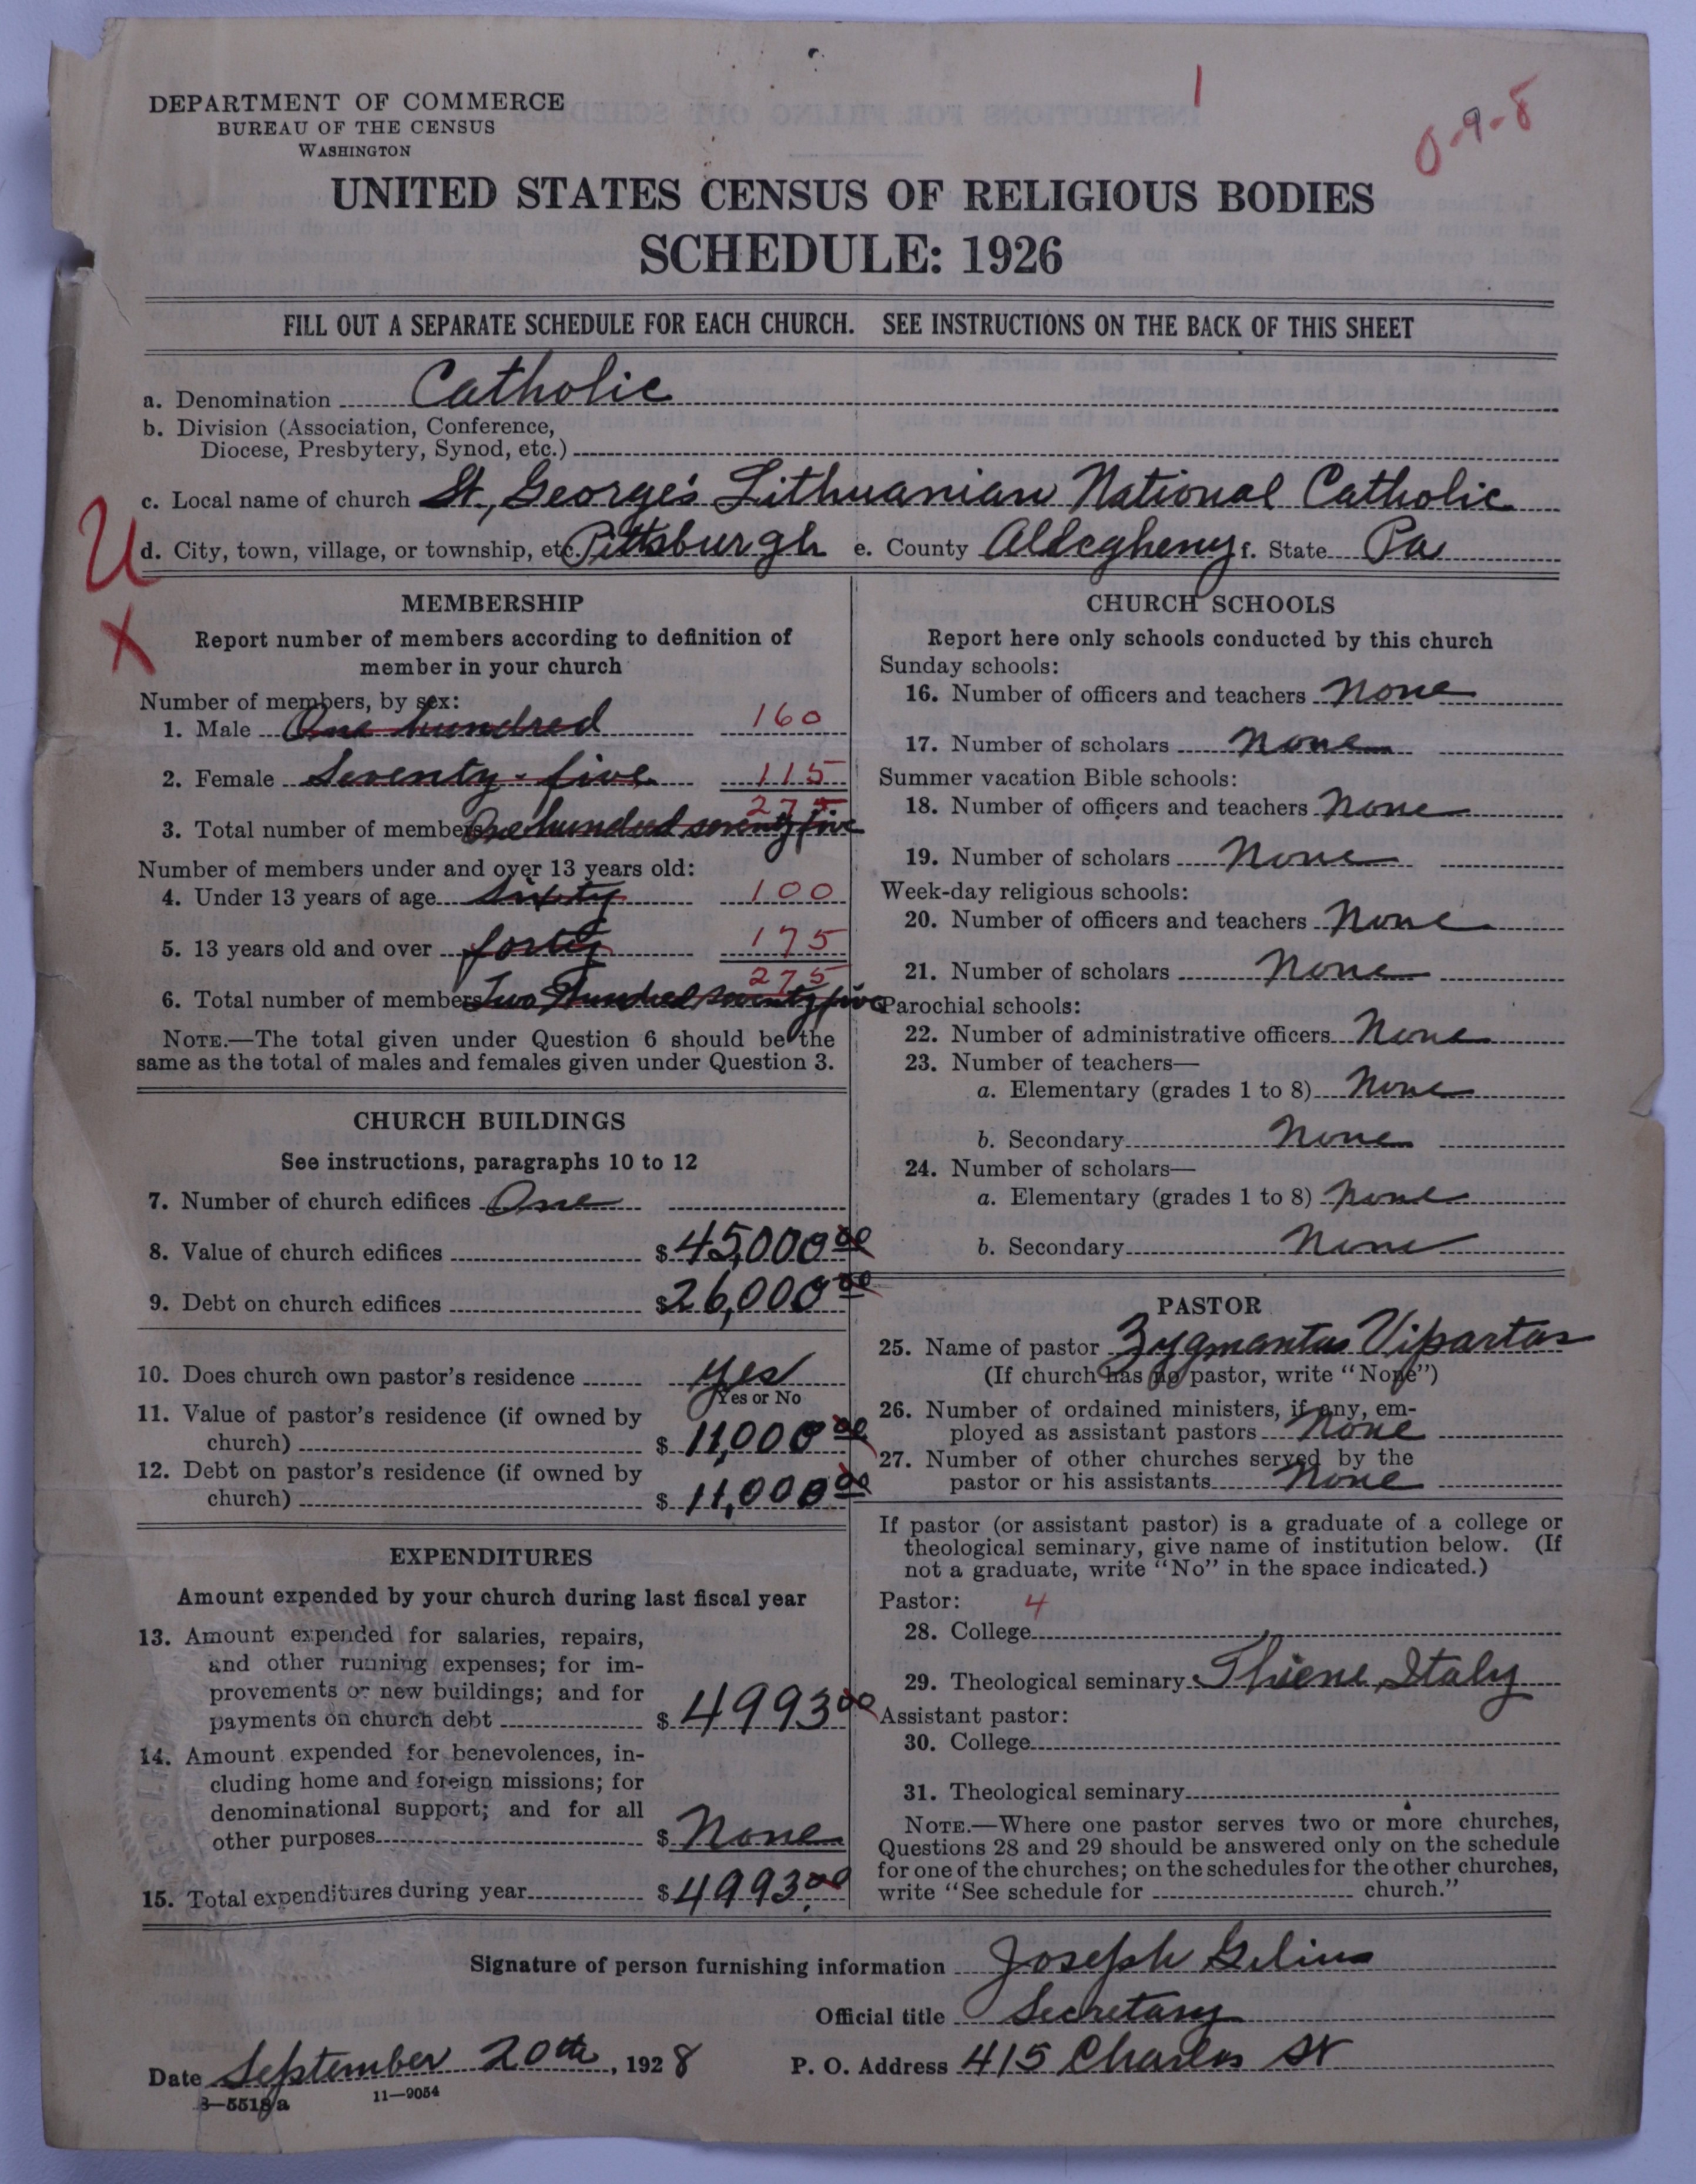 1
0-9-8
DEPARTMENT OF COMMERCE
BUREAU OF THE CENSUS
WASHINGTON
UNITED STATES CENSUS OF RELIGIOUS BODIES
SCHEDULE: 1926
FILL OUT A SEPARATE SCHEDULE FOR EACH CHURCH. SEE INSTRUCTIONS ON THE BACK OF THIS SHEET
a. Denomination Catholic
b. Division (Association, Conference,
Diocese, Presbytery, Synod, etc.)
c. Local name of church St. George's Lithuanian National Catholic
U
d. City, town, village, or township, etc. Pittsburgh e. County Allegheny f. State Pa
X
MEMBERSHIP
Report number of members according to definition of
member in your church
Number of members, by sex:
1. Male One hundred 160
2. Female Seventy-five 115
3. Total number of members One hundred seventy five 275
Number of members under and over 13 years old:
4. Under 13 years of age Sixty 100
5. 13 years old and over forty 175
6. Total number of members Two Hundred seventy five 275
NOTE.—The total given under Question 6 should be the
same as the total of males and females given under Question 3.
CHURCH BUILDINGS
See instructions, paragraphs 10 to 12
7. Number of church edifices One
8. Value of church edifices $ 45,000 00
9. Debt on church edifices $ 26,000 00
10. Does church own pastor's residence Yes
Yes or No
11. Value of pastor's residence (if owned by
church) $ 11,000 00
12. Debt on pastor's residence (if owned by
church) $ 11,000 00
EXPENDITURES
Amount expended by your church during last fiscal year
13. Amount expended for salaries, repairs,
and other running expenses; for im-
provements or new buildings; and for
payments on church debt $ 4993 00
14. Amount expended for benevolences, in-
cluding home and foreign missions; for
denominational support; and for all
other purposes $ None
15. Total expenditures during year $ 4993.00
CHURCH SCHOOLS
Report here only schools conducted by this church
Sunday schools:
16. Number of officers and teachers None
17. Number of scholars None
Summer vacation Bible schools:
18. Number of officers and teachers None
19. Number of scholars None
Week-day religious schools:
20. Number of officers and teachers None
21. Number of scholars None
Parochial schools:
22. Number of administrative officers None
23. Number of teachers—
a. Elementary (grades 1 to 8) None
b. Secondary None
24. Number of scholars—
a. Elementary (grades 1 to 8) None
b. Secondary None
PASTOR
25. Name of pastor Zygmantus Vipartas
(If church has no pastor, write "None")
26. Number of ordained ministers, if any, em-
ployed as assistant pastors None
27. Number of other churches served by the
pastor or his assistants None
If pastor (or assistant pastor) is a graduate of a college or
theological seminary, give name of institution below. (If
not a graduate, write "No" in the space indicated.)
Pastor: 4
28. College
29. Theological seminary Thiene, Italy
Assistant pastor:
30. College
31. Theological seminary
NOTE.—Where one pastor serves two or more churches,
Questions 28 and 29 should be answered only on the schedule
for one of the churches; on the schedules for the other churches,
write "See schedule for church."
Signature of person furnishing information Joseph Gelius
Official title Secretary
Date September 20th, 1928 P. O. Address 415 Charles St
8—5518a 11—9054